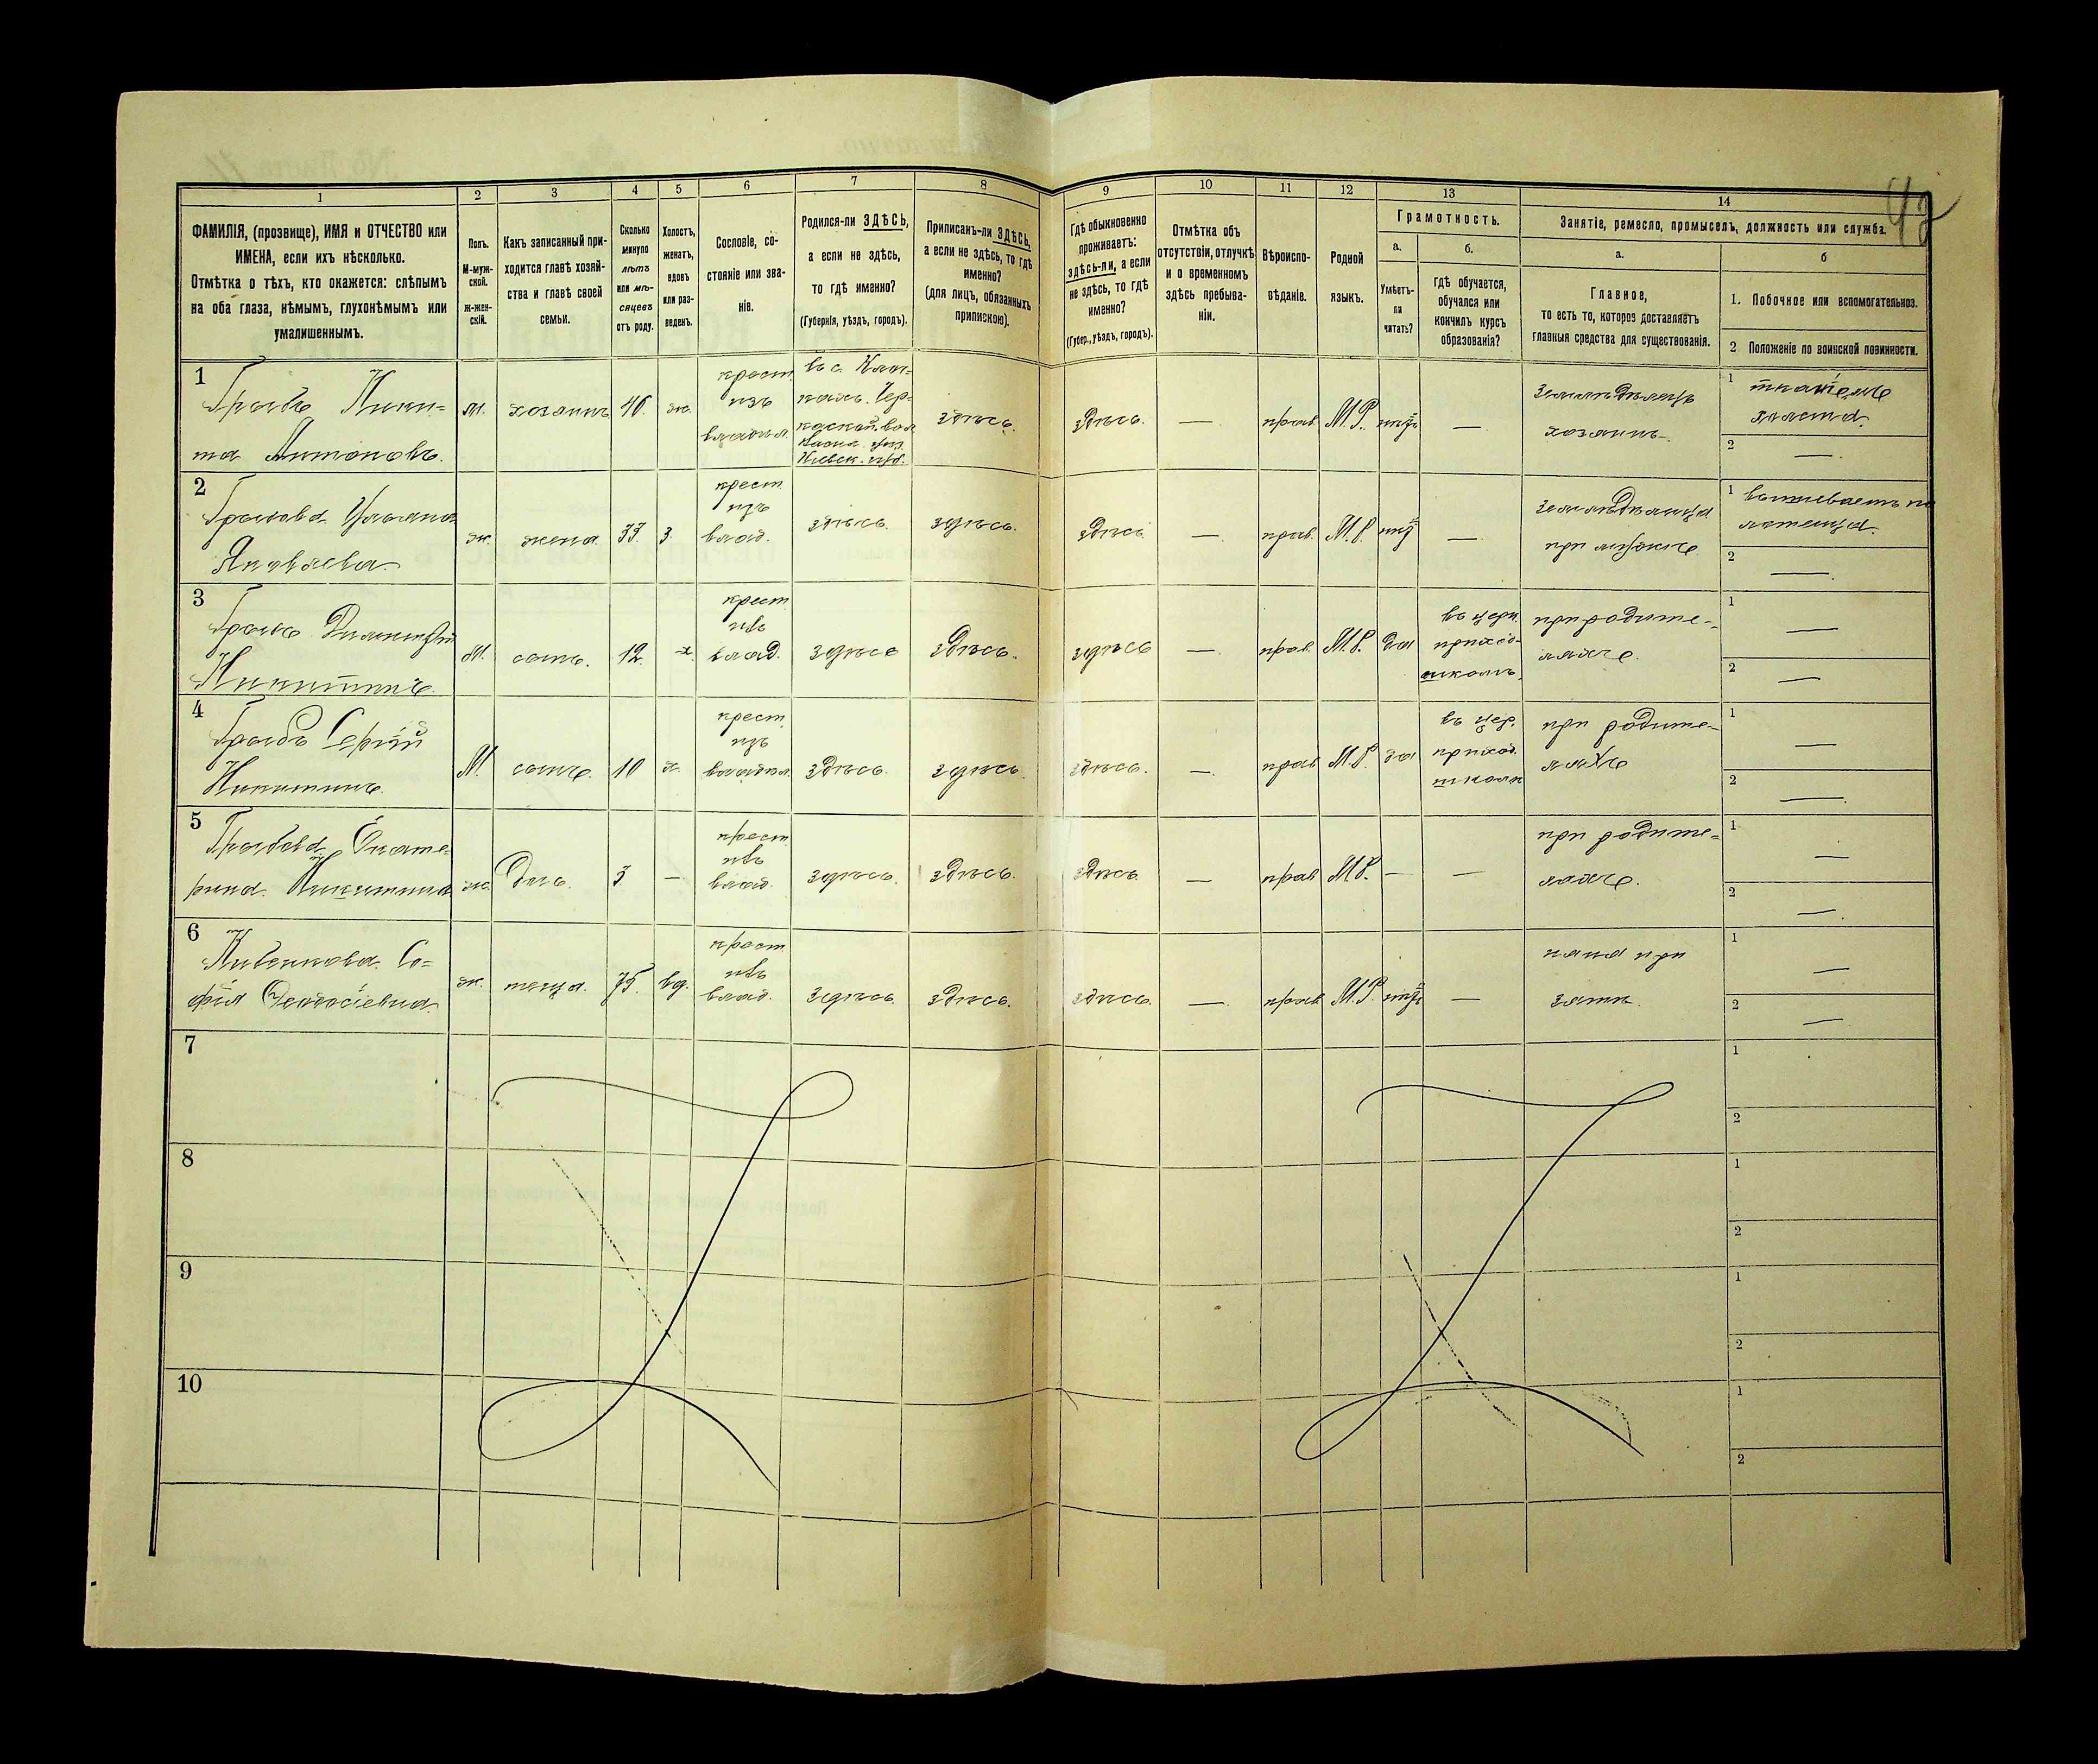 1 2 3 4 5 6 7 8 9 10 11 12 13 14
ФАМИЛІЯ, (прозвище), ИМЯ и ОТЧЕСТВО или
ИМЕНА, если ихъ нѣсколько.
Отмѣтка о тѣхъ, кто окажется: слѣпымъ
на оба глаза, нѣмымъ, глухонѣмымъ или
умалишеннымъ.
Полъ.
М-муж-
ской.
ж-жен-
скій.
Какъ записанный при-
ходится главѣ хозяй-
ства и главѣ своей
семьи.
Сколько
минуло
лѣтъ
или мѣ-
сяцевъ
отъ роду.
Холостъ,
женатъ,
вдовъ
или раз-
веденъ.
Сословіе, со-
стояніе или зва-
ніе.
Родился-ли ЗДѢСЬ,
а если не здѣсь,
то гдѣ именно?
(Губернія, уѣздъ, городъ).
Приписанъ-ли ЗДѢСЬ,
а если не здѣсь, то гдѣ
именно?
(для лицъ, обязанныхъ
припискою).
Гдѣ обыкновенно
проживаетъ:
здѣсь-ли, а если
не здѣсь, то гдѣ
именно?
(Губер., уѣздъ, городъ).
Отмѣтка объ
отсутствіи, отлучкѣ
и о временномъ
здѣсь пребыва-
ніи.
Вѣроиспо-
вѣданіе.
Родной
языкъ.
Грамотность.
а.
Умѣетъ-
ли
читать?
б.
Гдѣ обучается,
обучался или
кончилъ курсъ
образованія?
Занятіе, ремесло, промыселъ, должность или служба.
а.
Главное,
то есть то, которое доставляетъ
главныя средства для существованія.
б
1. Побочное или вспомогательное.
2 Положеніе по воинской повинности.
1
Ники-
та Антоновъ.
м.
хозяинъ
40.
ж.
крест.
изъ
владѣл.
въ с.
Кіевск. губ.
здѣсь.
здѣсь.
—
прав.
М.Р.
нѣтъ
—
земледѣлецъ
хозяинъ
1
холста.
2 —
2
Ульяна
Яковлева
ж.
жена.
33.
з.
крест.
изъ
влад.
здѣсь.
здѣсь.
здѣсь
—
прав.
М.Р.
нѣтъ
—
земледѣлица
при мужѣ
1
2 —
3
Димитрій
Никитинъ.
М.
сынъ.
12.
х.
крест.
изъ
влад.
здѣсь
здѣсь.
здѣсь
—
прав.
М.Р.
да
въ церк.
приход-
школѣ.
при родите-
ляхъ.
1 —
2 —
4
Сергій
Никитинъ.
М.
сынъ.
10
х.
крест.
изъ
владѣл.
здѣсь.
здѣсь.
здѣсь.
—
прав
М.Р.
да
въ цер.
приход.
школѣ
при родите-
ляхъ
1 —
2 —
5
Екате-
рина Никитина
ж.
дочь.
3
—
крест.
изъ
влад.
здѣсь.
здѣсь.
здѣсь
—
прав
М.Р.
—
—
при родите-
ляхъ.
1 —
2 —
6
Со-
фія Феодосіевна.
ж.
теща.
75.
вд.
крест.
изъ
влад.
здѣсь.
здѣсь.
здѣсь.
—
прав
М.Р.
нѣтъ
—
няня при
зятѣ.
1 —
2 —
7
1
2
8
1
2
9
1
2
10
1
2